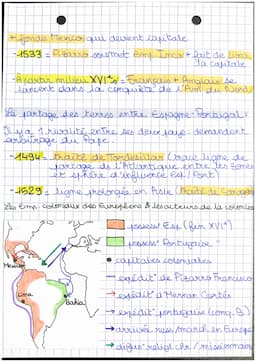 + fonde Mexico qui devient capitale
-1533 = Pizarro soumet Emp Inca + fait de Lima
la capitale
- A partir milieu XVIe = Français + Anglais se
lancent dans la conquête de l'Am du Nord
Le partage des terres entre Espagne-Portugal
Il y a 1 rivalité entre ses deux pays : demandent
arbitrage du Pape
-1494 = Traité de Tordesillas (trace ligne de
partage de l'Atlantique entre les zones
et sphère d'influence Esp/Port)
-1529 = ligne prolongée en Asie (Traité de
Les Emp. coloniaux des Européens & les acteurs de la
possess° Esp (fin XVIe)
possess° Portugaise
capitales coloniales
expédit° de Pizarro Francisco
expédit° d'Hernan Cortés
expédit° portugaise
arrivée ress/march en Europe
relig / missionnaire
Mexico
Lima
Bahia